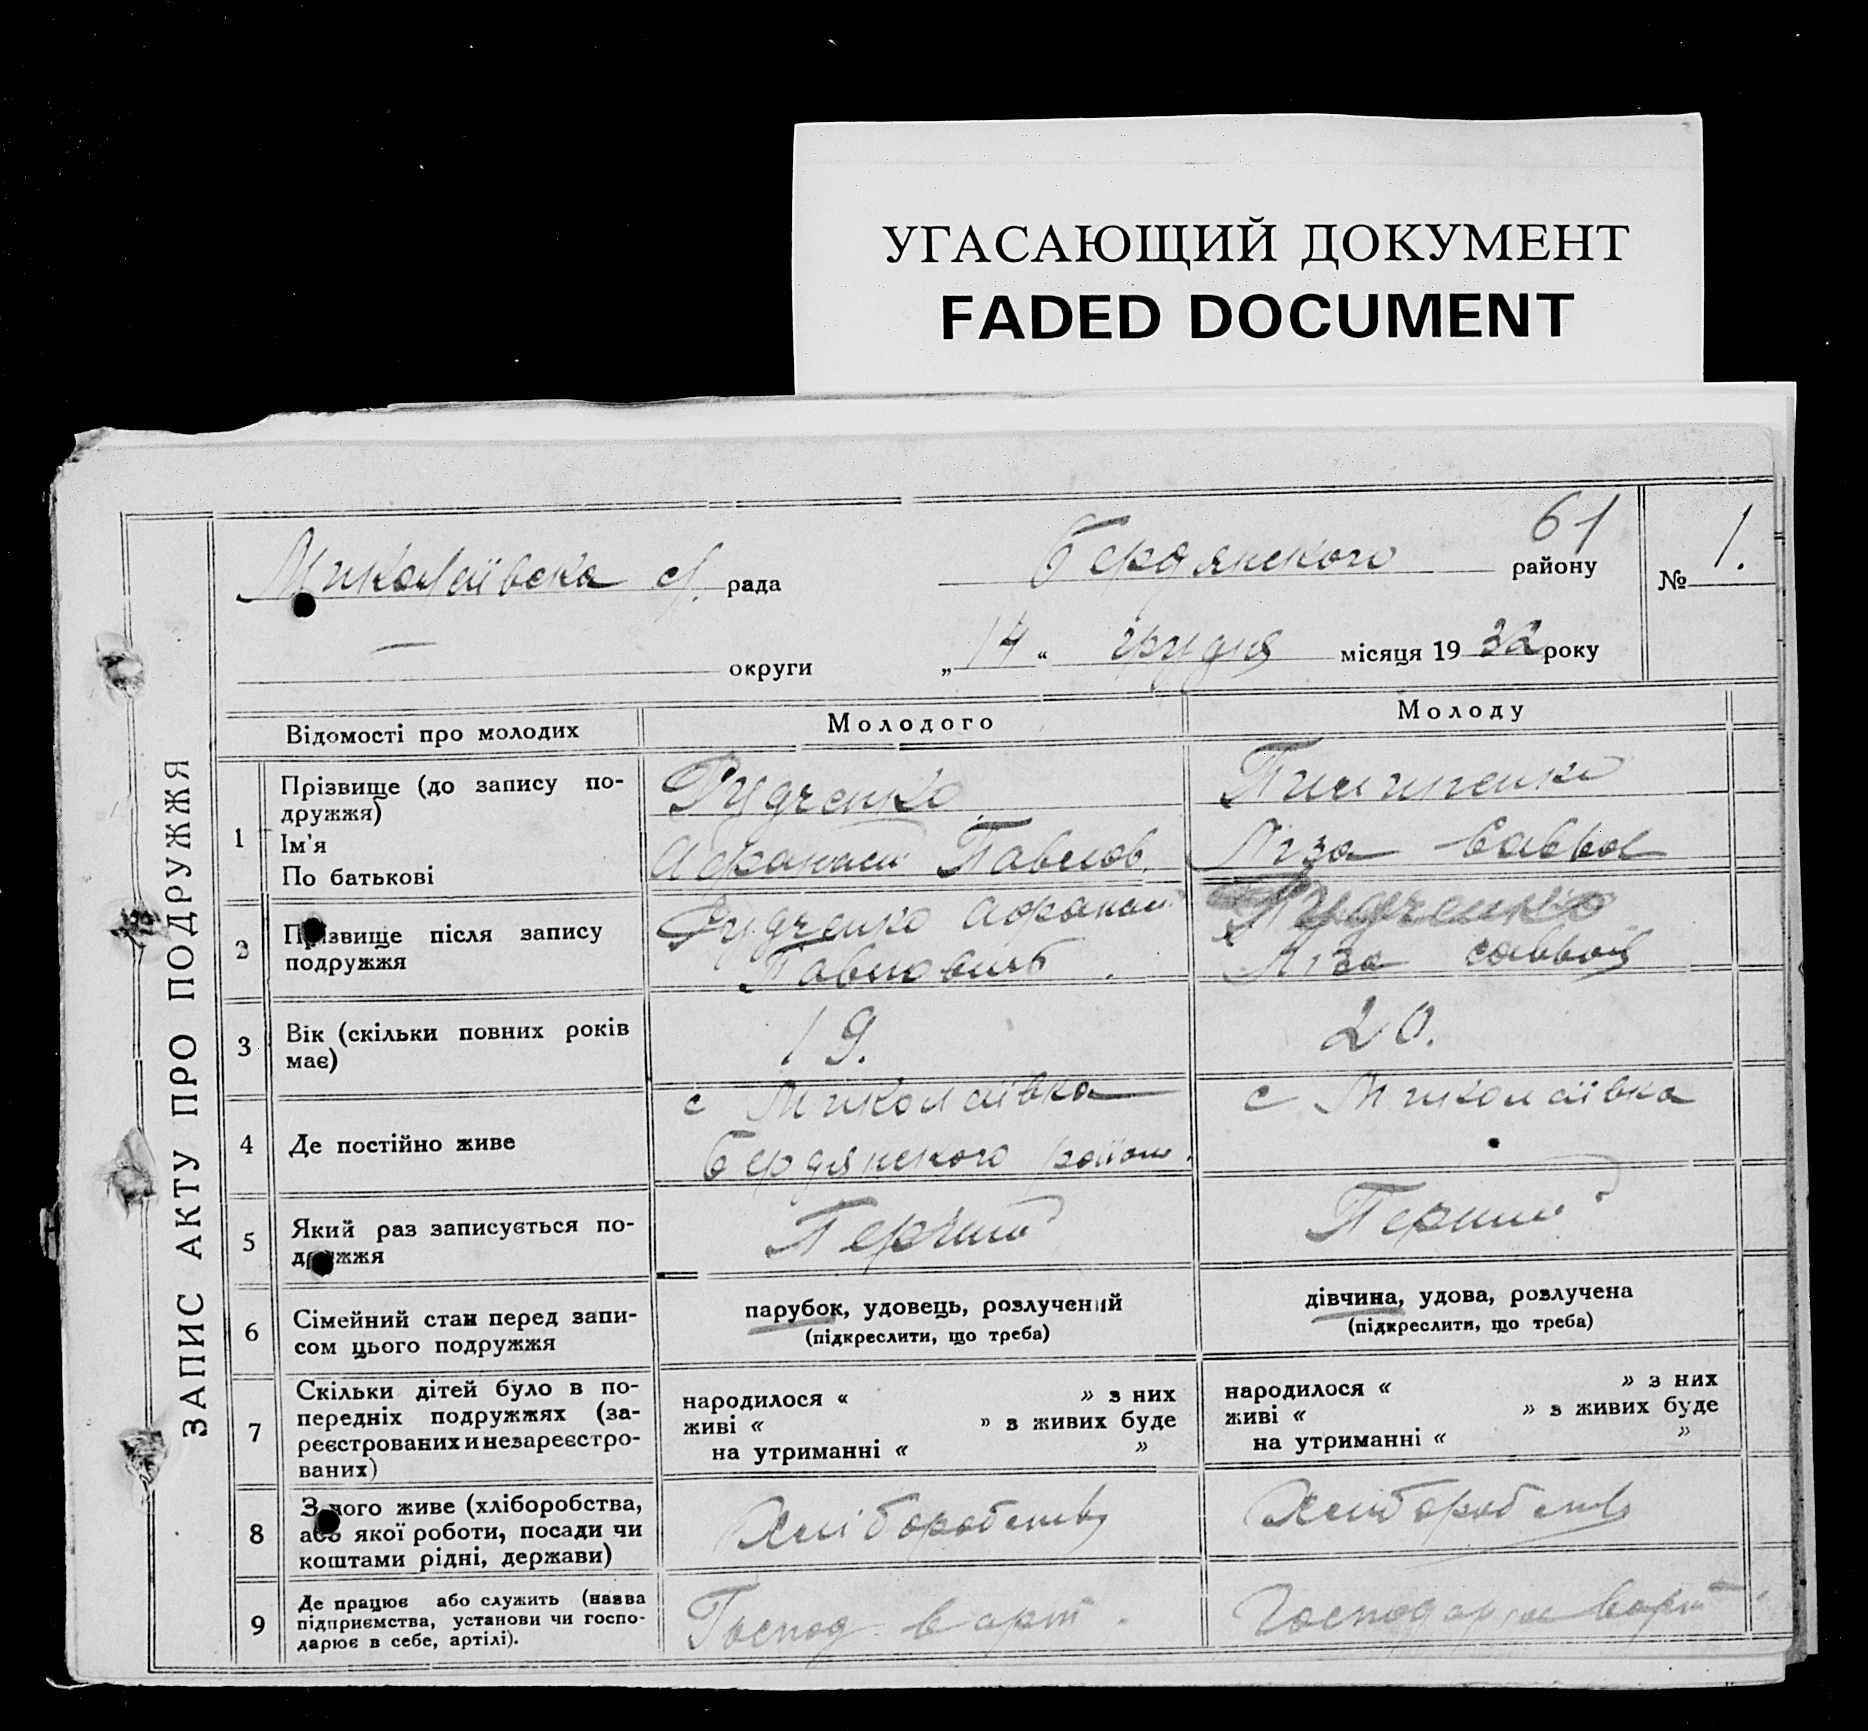 УГАСАЮЩИЙ ДОКУМЕНТ
FADED DOCUMENT
61
Миколаївска с/. рада Бердянского району № 1.
— округи „14“ грудня місяця 1932 року
ЗАПИС АКТУ ПРО ПОДРУЖЖЯ
Відомості про молодих Молодого Молоду
1 Прізвище (до запису по-
дружжя)
Ім'я
По батькові
Рудченко
Афанасій Павлов.
Ліза Савва
2 Прізвище після запису
подружжя
Рудченко Афанасій
Павлович
Рудченко
Ліза Саввов
3 Вік (скільки повних років
має)
19.
20.
4 Де постійно живе
с Миколаївка
Бердянского район.
с Миколаївка
5 Який раз записується по-
дружжя
Перший
Перший
6 Сімейний стан перед запи-
сом цього подружжя
парубок, удовець, розлучений
(підкреслити, що треба)
дівчина, удова, розлучена
(підкреслити, що треба)
7 Скільки дітей було в по-
передніх подружжях (за-
реєстрованих и незареєстро-
ваних)
народилося « » з них
живі « » з живих буде
на утриманні « »
народилося « » з них
живі « » з живих буде
на утриманні « »
8 З чого живе (хліборобства,
або якої роботи, посади чи
коштами рідні, держави)
Хліборобств
Хліборобств
9 Де працює або служить (назва
підприємства, установи чи госпо-
дарює в себе, артілі).
Господ в арт.
Господарює в арт